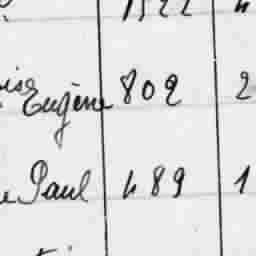 1522 "
Eugène 802 2
e Paul 489 1